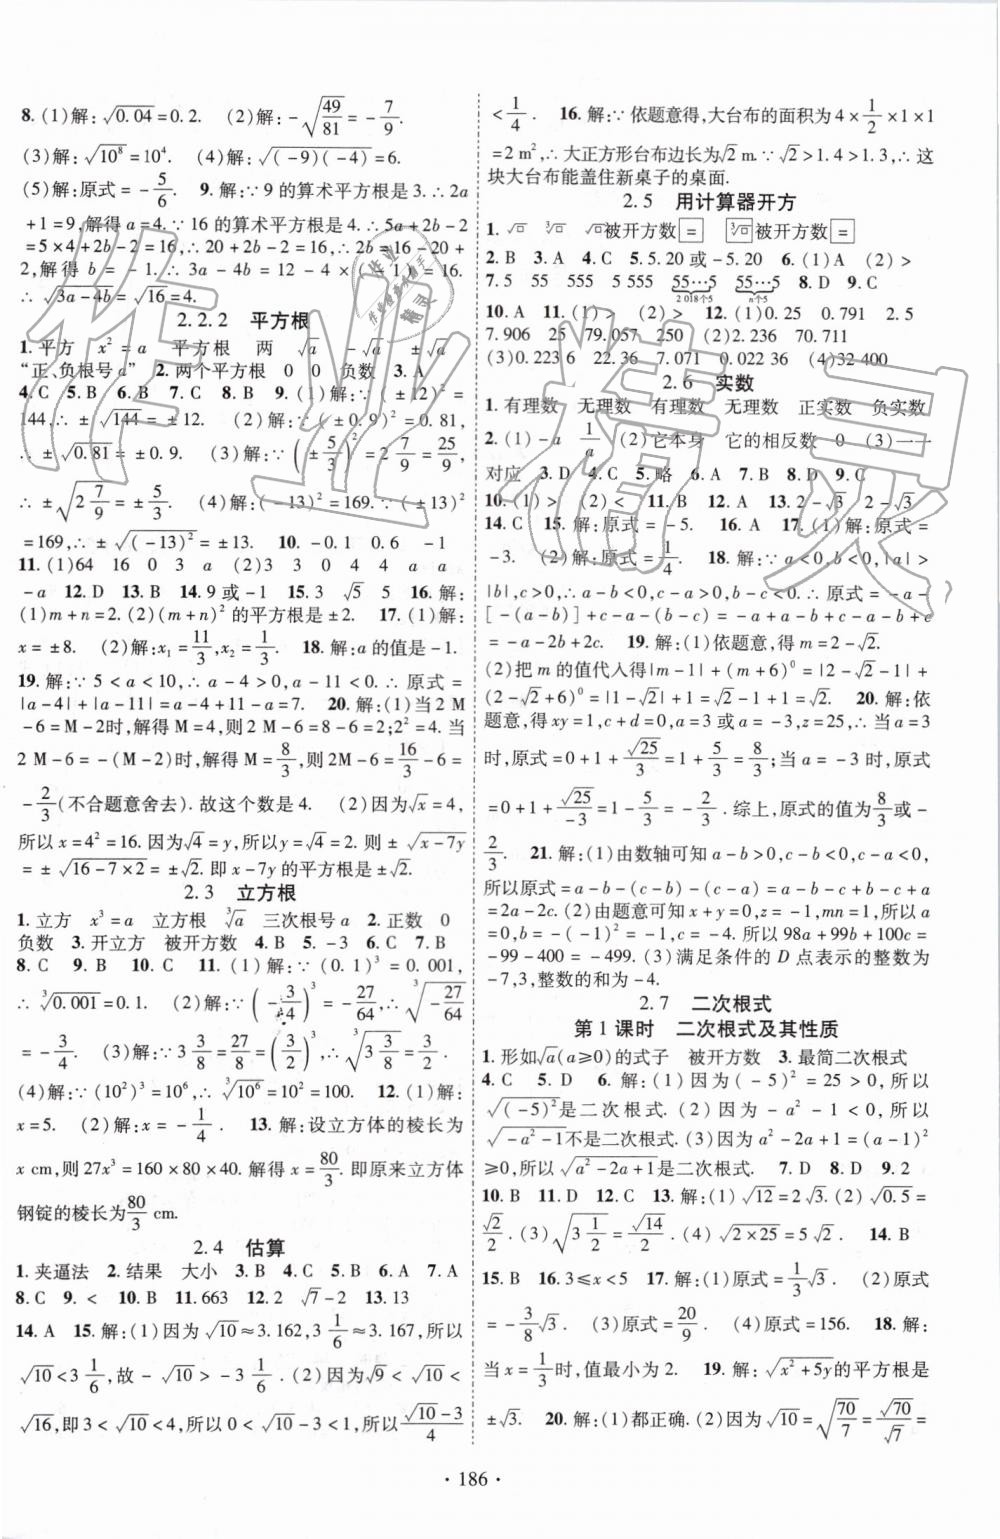 8. (1)解:√0.04=0.2. (2)解:-√(49/81)=-7/9.
(3)解:√10⁸=10⁴. (4)解:√((-9)(-4))=6.
(5)解:原式=-5/6. 9. 解:∵9的算术平方根是3.∴2a
+1=9,解得a=4.∵16的算术平方根是4.∴5a+2b-2
=5×4+2b-2=16,∴20+2b-2=16,∴2b=-20+16+
2,解得b=-1.∴3a-4b=12-4×(-1)=16.
∴√(3a-4b)=√16=4.
2.2.2 平方根
1. 平方 x²=a 平方根 两 √a -√a ±√a
“正、负根号a” 2. 两个平方根 0 0 负数 3. A
4. C 5. B 6. B 7. C 8. B 9. (1)解:∵(±12)²=
144,∴±√144=±12. (2)解:∵(±0.9)²=0.81,
∴±√0.81=±0.9. (3)解:∵(±5/3)²=2 7/9=25/9,
∴±√(2 7/9)=±5/3. (4)解:(-13)²=169.∵(±13)²
=169,∴±√((-13)²)=±13. 10. -0.1 0.6 -1
11. (1)64 16 0 3 a (2)3 3 0 4 4 a a
-a 12. D 13. B 14. 9或-1 15. 3 √5 5 16. 解:
(1)m+n=2. (2)(m+n)²的平方根是±2. 17. (1)解:
x=±8. (2)解:x₁=11/3,x₂=1/3. 18. 解:a的值是-1.
19. 解:∵5<a<10,∴a-4>0,a-11<0.∴原式=
|a-4|+|a-11|=a-4+11-a=7. 20. 解:(1)当2 M
-6=M-2时,解得M=4,则2M-6=8-6=2;2²=4. 当
2 M-6=-(M-2)时,解得M=8/3,则2M-6=16/3-6=
-2/3(不合题意舍去). 故这个数是4. (2)因为√x=4,
所以x=4²=16. 因为√4=y,所以y=√4=2. 则±√(x-7y)
=±√(16-7×2)=±√2. 即x-7y的平方根是±√2.
2.3 立方根
1. 立方 x³=a 立方根 ³√a 三次根号a 2. 正数 0
负数 3. 开立方 被开方数 4. B 5. -3 6. C 7. B
8. C 9. B 10. C 11. (1)解:∵(0.1)³=0.001,
∴³√0.001=0.1. (2)解:∵(-3/4)³=-27/64,∴³√(-27/64)
=-3/4. (3)解:∵3 3/8=27/8=(3/2)³,∴³√(3 3/8)=3/2.
(4)解:∵(10²)³=10⁶,∴³√10⁶=10²=100. 12. (1)解:
x=5. (2)解:x=-1/4. 13. 解:设立方体的棱长为
x cm,则27x³=160×80×40. 解得x=80/3. 即原来立方体
钢锭的棱长为80/3 cm.
2.4 估算
1. 夹逼法 2. 结果 大小 3. B 4. C 5. B 6. A 7. A
8. C 9. < 10. B 11. 663 12. 2 √7-2 13. 13
14. A 15. 解:(1)因为√10≈3.162,3 1/6≈3.167,所以
√10<3 1/6,故-√10>-3 1/6. (2)因为√9<√10<
√16,即3<√10<4,所以0<√10-3<1,所以(√10-3)/4
<1/4. 16. 解:∵依题意得,大台布的面积为4×1/2×1×1
=2 m²,∴大正方形台布边长为√2 m.∵√2>1.4>1.3,∴这
块大台布能盖住新桌子的桌面.
2.5 用计算器开方
1. √□ ³√□ √□被开方数= ³√□被开方数=
2. B 3. A 4. C 5. 5.20或-5.20 6. (1)A (2)>
7. 5 55 555 5555 55…5(2 018个5) 55…5(n个5) 8. D 9. C
10. A 11. (1)> (2)> 12. (1)0.25 0.791 2.5
7.906 25 79.057 250 (2)2.236 70.711
(3)0.223 6 22.36 7.071 0.022 36 (4)32 400
2.6 实数
1. 有理数 无理数 有理数 无理数 正实数 负实数
2. (1)-a 1/a (2)它本身 它的相反数 0 (3)一一
对应 3. D 4. C 5. 略 6. A 7. B 8. D 9. C
10. (1)> (2)< 11. B 12. A 13. 2-√3 2-√3
14. C 15. 解:原式=-5. 16. A 17. (1)解:原式=
-3. (2)解:原式=1/4. 18. 解:∵a<0,b<0,|a|>
|b|,c>0,∴a-b<0,c-a>0,b-c<0.∴原式=-a-
[-(a-b)]+c-a-(b-c)=-a+a-b+c-a-b+c
=-a-2b+2c. 19. 解:(1)依题意,得m=2-√2.
(2)把m的值代入得|m-1|+(m+6)⁰=|2-√2-1|+
(2-√2+6)⁰=|1-√2|+1=√2-1+1=√2. 20. 解:依
题意,得xy=1,c+d=0,a=3或a=-3,z=25,∴当a=3
时,原式=0+1+√25/3=1+5/3=8/3;当a=-3时,原式
=0+1+√25/-3=1-5/3=-2/3. 综上,原式的值为8/3或-
2/3. 21. 解:(1)由数轴可知a-b>0,c-b<0,c-a<0,
所以原式=a-b-(c-b)-(c-a)=a-b-c+b-c+a
=2a-2c. (2)由题意可知x+y=0,z=-1,mn=1,所以a
=0,b=-(-1)=1,c=-4. 所以98a+99b+100c=
-99-400=-499. (3)满足条件的D点表示的整数为
-7,3,整数的和为-4.
2.7 二次根式
第1课时 二次根式及其性质
1. 形如√a(a≥0)的式子 被开方数 3. 最简二次根式
4. C 5. D 6. 解:(1)因为(-5)²=25>0,所以
√((-5)²)是二次根式. (2)因为-a²-1<0,所以
√(-a²-1)不是二次根式. (3)因为a²-2a+1=(a-1)²
≥0,所以√(a²-2a+1)是二次根式. 7. D 8. D 9. 2
10. B 11. D 12. C 13. 解:(1)√12=2√3. (2)√0.5=
√2/2. (3)√(3 1/2)=√14/2. (4)√(2×25)=5√2. 14. B
15. B 16. 3≤x<5 17. 解:(1)原式=1/3√3. (2)原式
=-3/8√3. (3)原式=20/9. (4)原式=156. 18. 解:
当x=1/3时,值最小为2. 19. 解:√(x²+5y)的平方根是
±√3. 20. 解:(1)都正确. (2)因为√10=√(70/7)=√70/√7=
· 186 ·
作业精灵